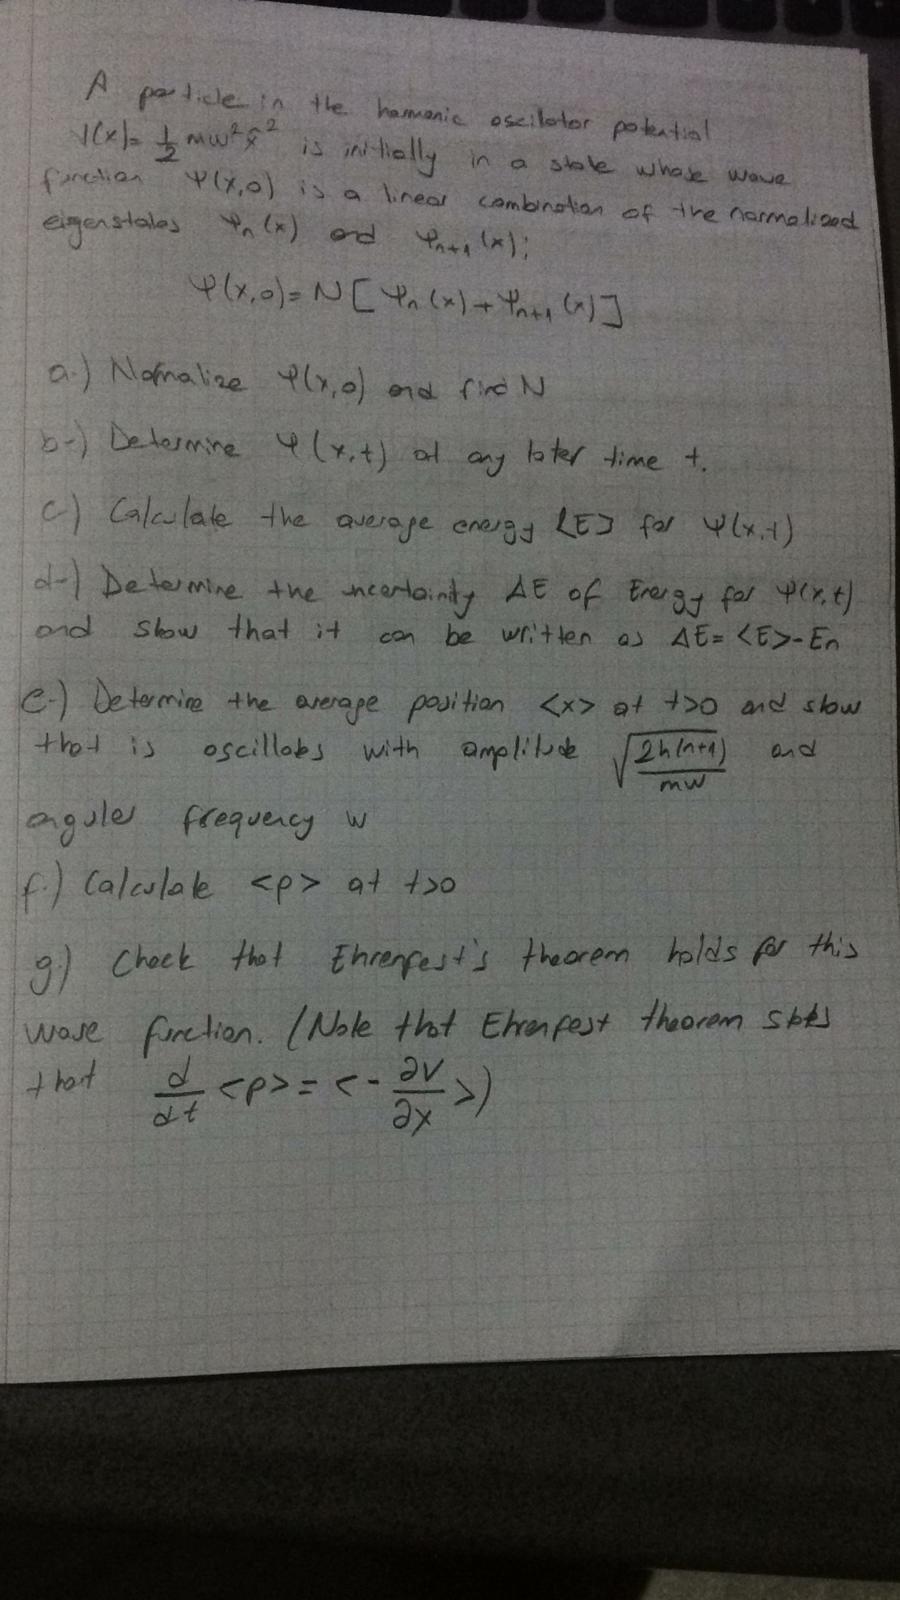 A particle in the hamonic oscilator potential
V(x)= 1/2 mw²x̂² is initially in a state whose wave
function Ψ(x,0) is a linear combination of the normalized
eigenstates Ψn(x) and Ψn+1(x);
Ψ(x,0)= N [ Ψn(x)+Ψn+1(x)]
a-) Normalize Ψ(x,0) and find N
b-) Determine Ψ(x,t) at any later time t.
c-) Calculate the average energy [E] for Ψ(x,t)
d-) Determine the uncertainity ΔE of Energy for Ψ(x,t)
and show that it can be written as ΔE= <E>-En
e-) Determine the average position <x> at t>0 and show
that is oscillates with amplitude √(2h(n+1)/mw) and
anguler frequency w
f-) Calculate <p> at t>0
g-) Check that Ehrenfest's theorem holds for this
wave function. (Note that Ehrenfest theorem states
that d/dt <p> = <- ∂V/∂x >)